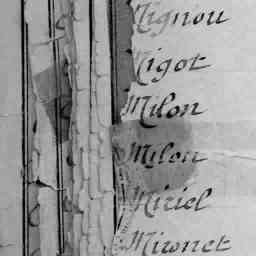 Mignou
Migot
Milon
Milon
Miriel
Mironet